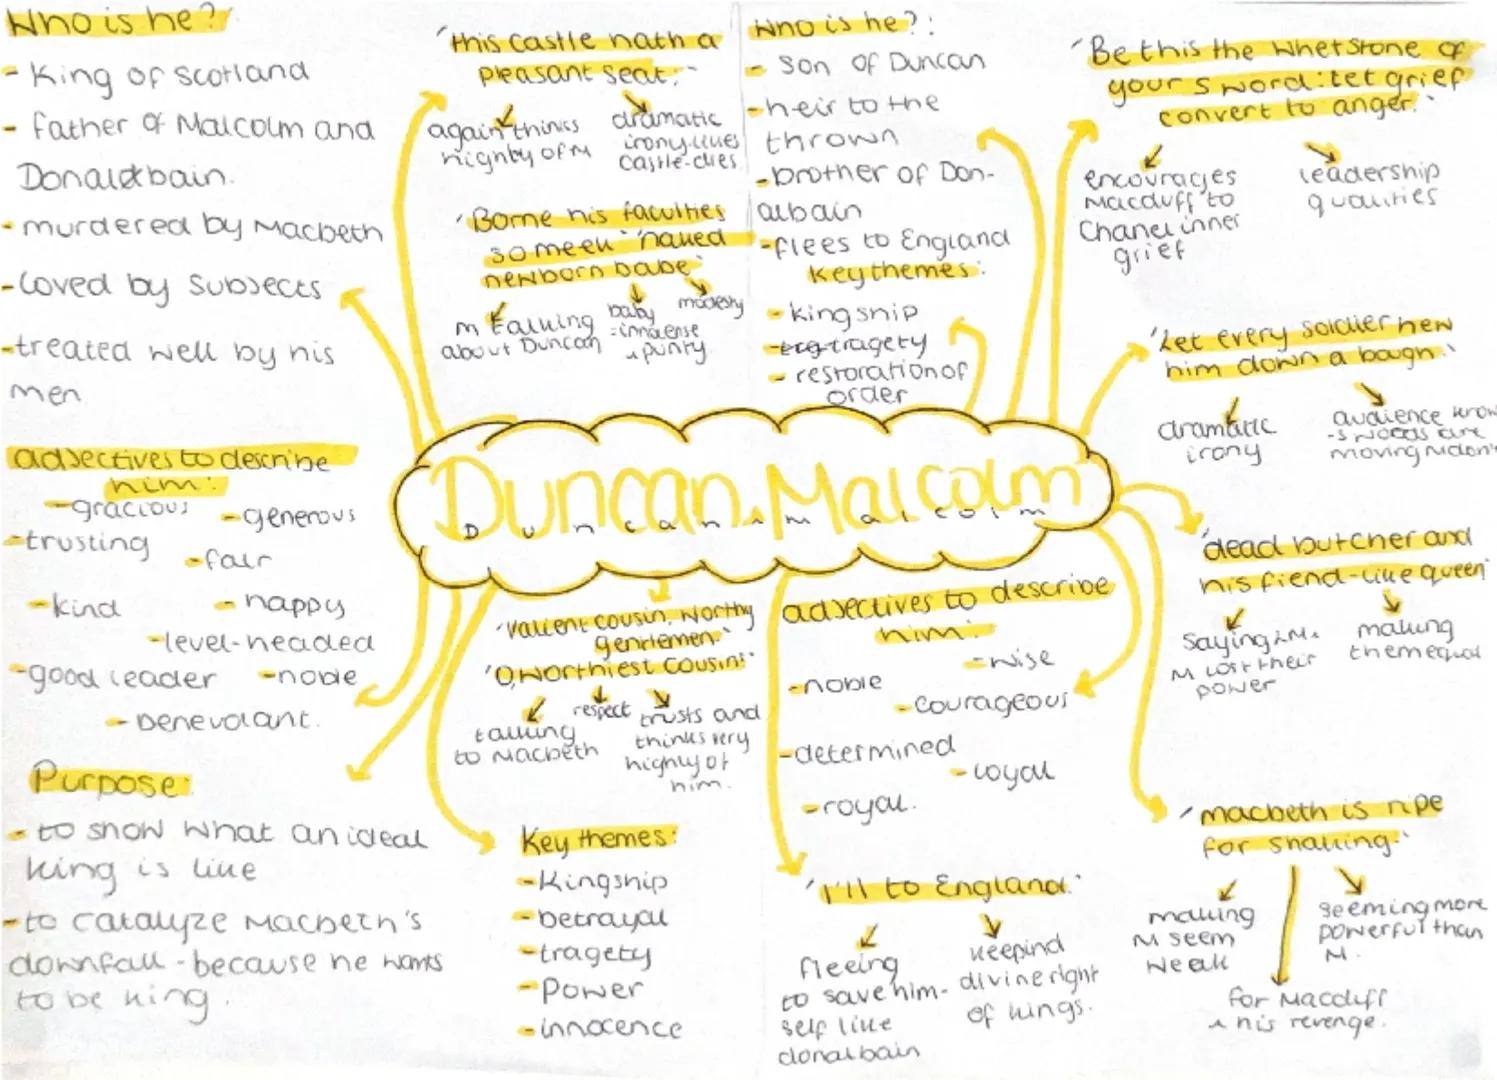 Who is he?
- King of scotland
- father of Malcolm and
Donaldbain.
- murdered by Macbeth
- loved by subjects
- treated well by his
men
adjectives to describe
him:
- gracious
- generous
- trusting
- fair
- kind
- happy
- level-headed
- good leader
- noble
- benevolant.
Purpose:
- to show what an ideal
king is like
- to catalyze Macbeth's
downfall - because he wants
to be king.
'this castle hath a
pleasant seat.'
again thinks
highly of M
dramatic
irony-likes
castle-dies
'Borne his faculties
so meek' 'naked
newborn babe'
M talking
about Duncan
baby
= innocense
& purity
modesty
Duncan & Malcolm
Duncan & malcolm
'valient cousin, worthy
gentlemen.'
'O, worthiest cousin!'
talking
to Macbeth
respect
trusts and
thinks very
highly of
him.
Key themes:
- Kingship
- betrayal
- tragety
- Power
- innocence
Who is he?:
- son of Duncan
- heir to the
thrown
- brother of Don-
albain
- flees to England
Key themes:
- kingship
- trg tragety
- restoration of
order
adjectives to describe
him:
- wise
- noble
- courageous
- determined
- loyal
- royal.
'I'll to England.'
fleeing
to save him-
self like
donalbain
keepind
divine right
of kings.
'Be this the whetstone of
your sword: let grief
convert to anger.'
encourages
Macduff to
Chanel inner
grief
leadership
qualities
'Let every soldier hew
him down a bough.'
dramatic
irony
audience know
-s woods are
moving M don't
'dead butcher and
his fiend-like queen'
saying LM &
M lost their
power
making
them equal
'macbeth is ripe
for shaking.'
making
M seem
weak
seeming more
powerful than
M.
for Macduff
& his revenge.